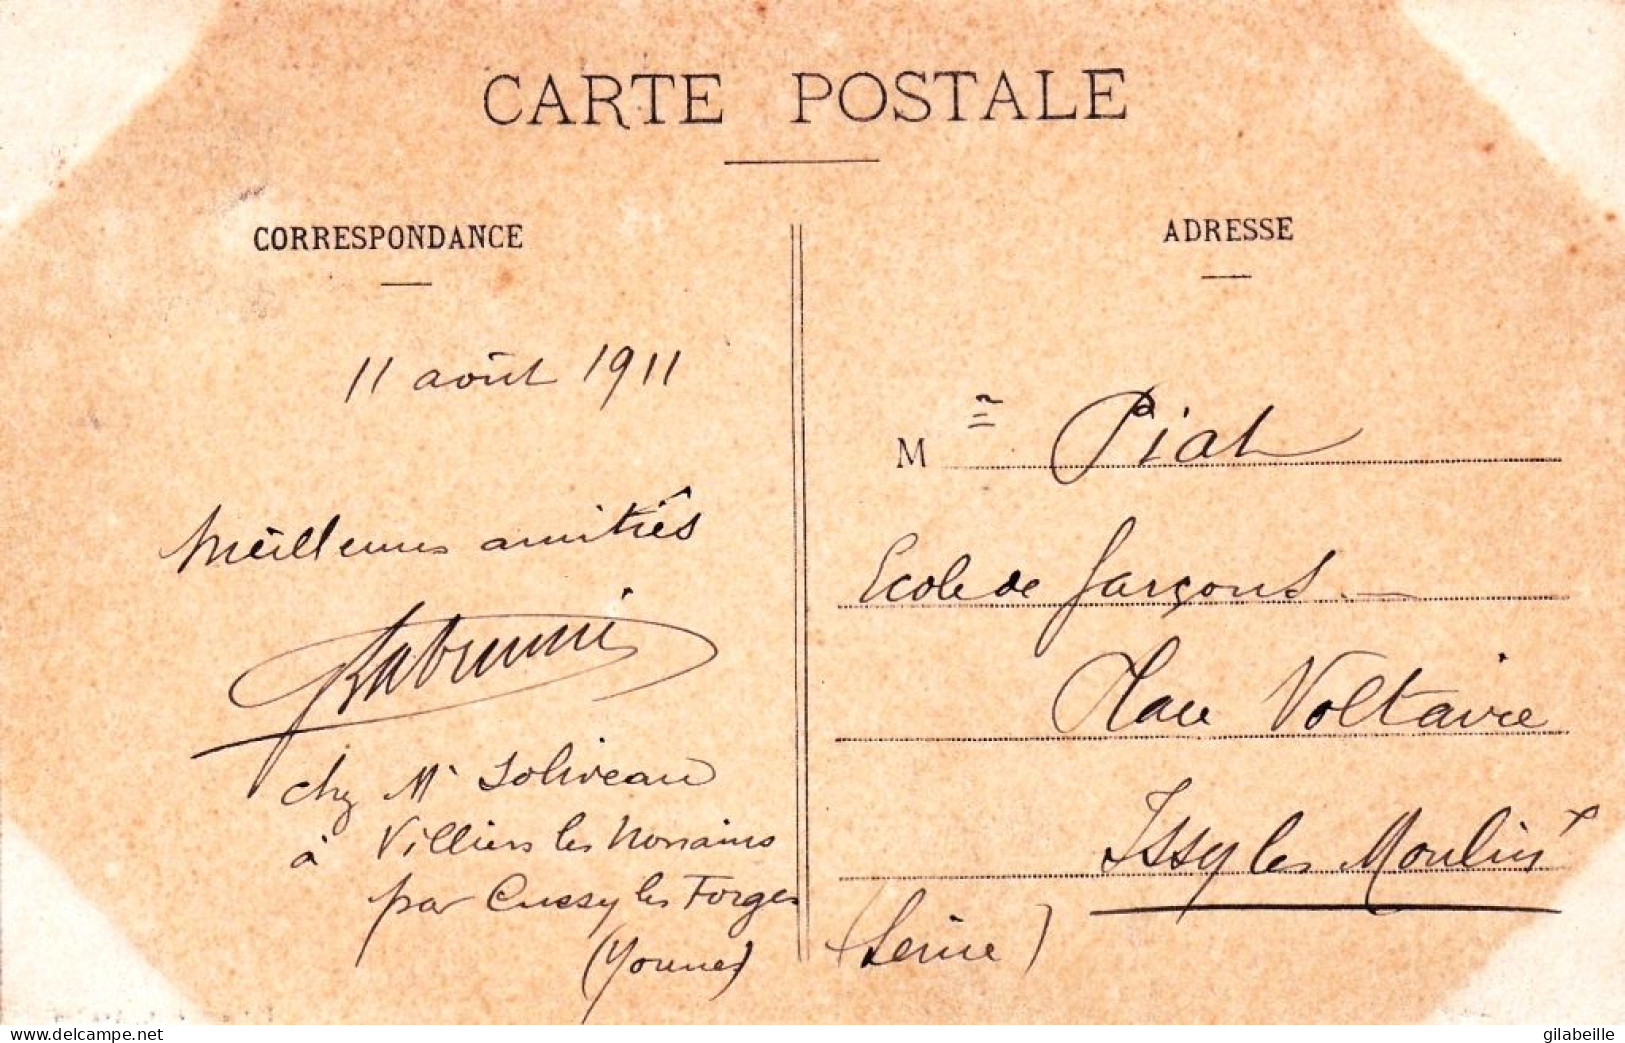 CARTE POSTALE
CORRESPONDANCE
11 août 1911
Meilleures amitiés
chez Mr Soliveau
à Villiers les Nonains
par Cussy les Forges
(Yonne)
ADRESSE
Mr Piat
Ecole de garçons
Place Voltaire
Issy les Moulinx
(Seine)
https://www.delcampe.net
gilabeille